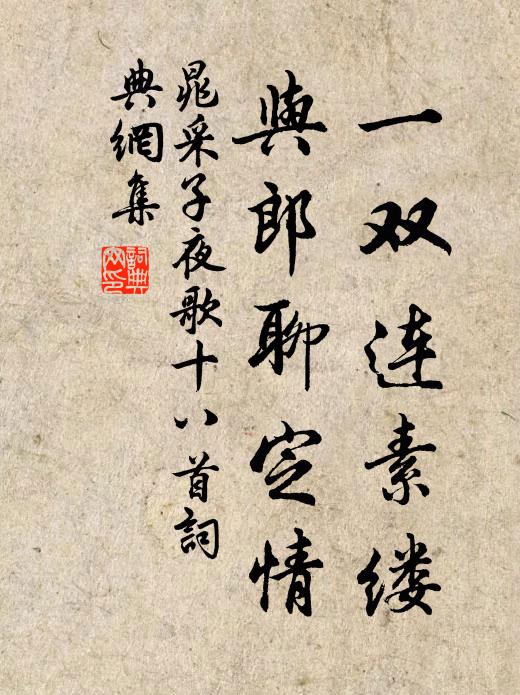 一双连素缕
與郎聊定情
晁采子夜歌十八首詞
典網集
詞典
网印